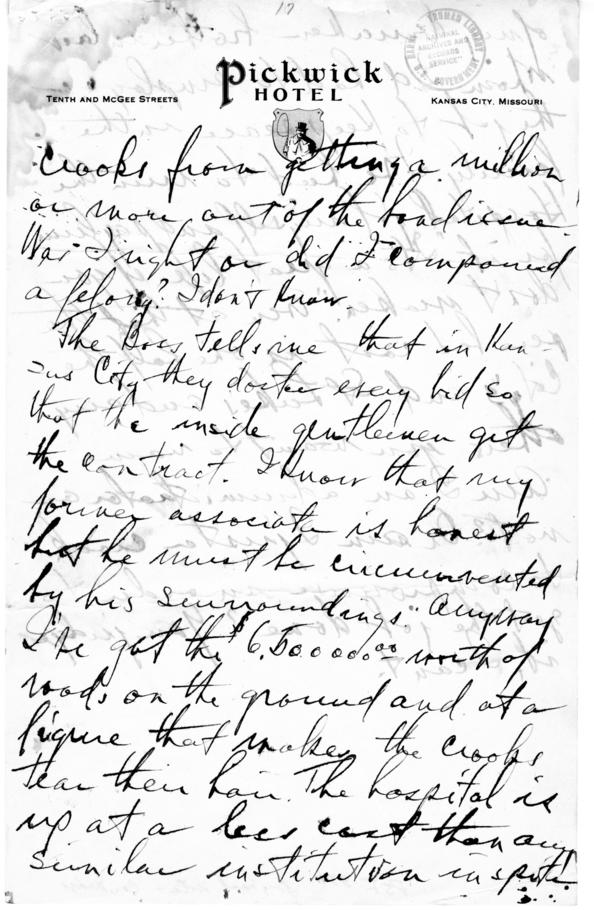 17
HARRY S. TRUMAN LIBRARY
NATIONAL
ARCHIVES AND
RECORDS
SERVICE
U.S. GOVERNMENT
Pickwick
HOTEL
TENTH AND MCGEE STREETS
KANSAS CITY, MISSOURI
crooks from getting a million
or more out of the bond issue.
Was I right or did I compound
a felony? I don't know.
The Boss tells me that in Kan-
sas City they doctor every bid so
that the inside gentlemen get
the contract. I know that my
former associate is honest
but he must be circumvented
by his surroundings. Anyway
I've got the $6,500,000.00 worth of
roads on the ground and at a
figure that makes the crooks
tear their hair. The hospital is
up at a less cost than any
similar institution in spite